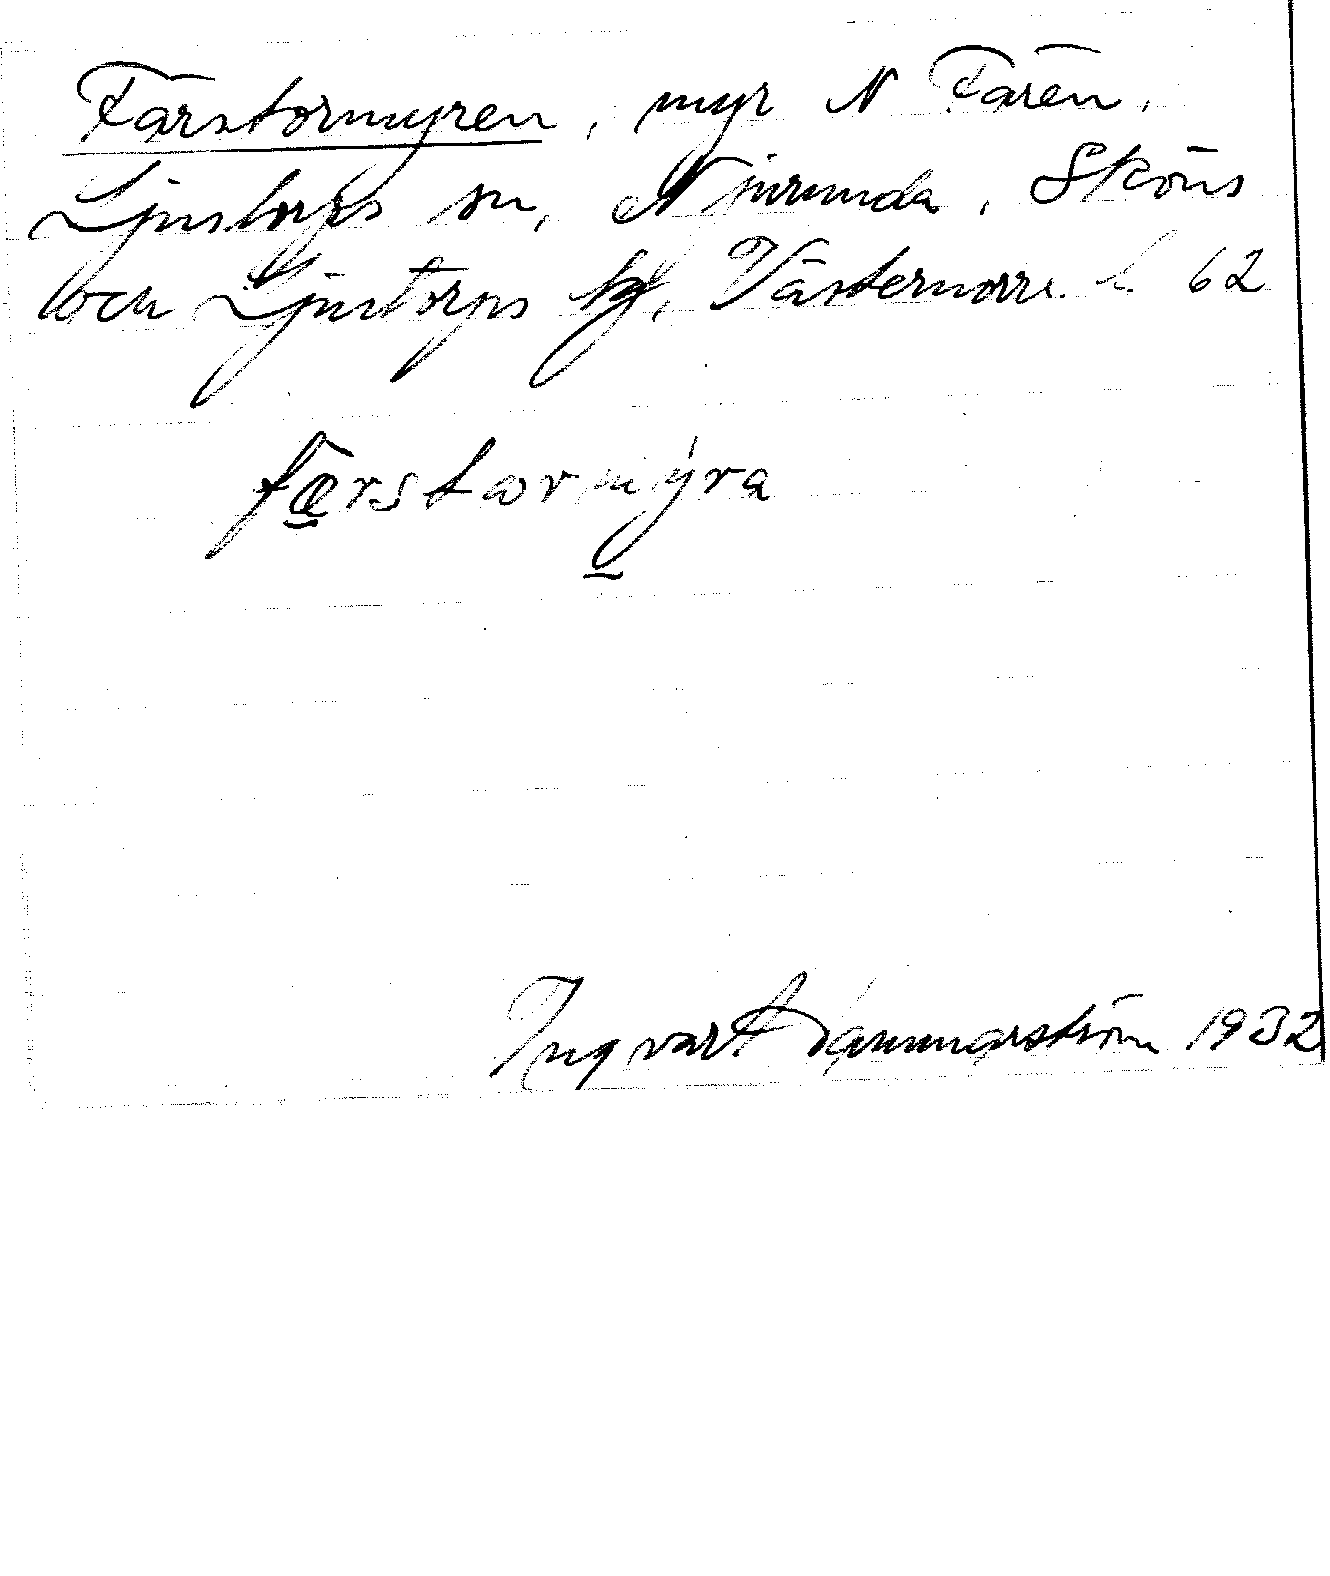 Färstormyren, myr N Fären,
Ljustorps sn, Njurunda, Sköns
och Ljustorps tg, Västernorrl. l. 62
færstormýra
Ingvart Hammarström 1932